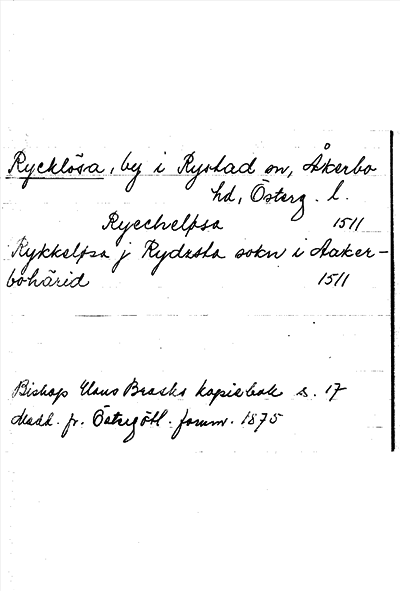 Rycklösa, by i Rystad sn, Åkerbo
hd, Österg. l.
Ryechelpsa 1511
Rykkelpsa j Rydzsta sokn i Aaker-
bohärid 1511
Biskop Hans Brasks kopiebok s. 17
Medd. fr. Östergötl. fornm. 1875